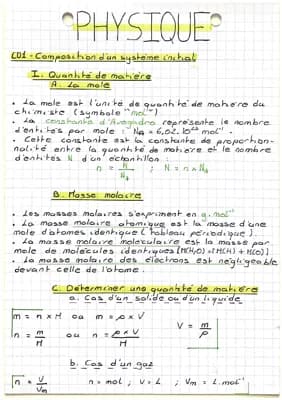 PHYSIQUE
C01 - Composition d'un système initial
I. Quantité de matière
A. La mole
• La mole est l'unité de quantité de matière du
chimiste (symbole "mol").
• La constante d'Avogadro représente le nombre
d'entités par mole : NA = 6,02.10²³ mol⁻¹.
Cette constante est la constante de proportion-
nalité entre la quantité de matière et le nombre
d'entités N d'un échantillon :
n = N/NA ; N = n × NA
B. Masse molaire
• Les masses molaires s'expriment en g.mol⁻¹
• La masse molaire atomique est la masse d'une
mole d'atomes identique (tableau périodique).
• La masse molaire moléculaire est la masse par
mole de molécules identiques (M(H₂O) = 2M(H) + M(O))
• La masse molaire des électrons est négligeable
devant celle de l'atome.
C. Déterminer une quantité de matière
a. Cas d'un solide ou d'un liquide
m = n × M ou m = ρ × V
n = m/M ou n = ρ × V/M V = m/ρ
b. Cas d'un gaz
n = V/Vm n = mol ; V = L ; Vm = L.mol⁻¹